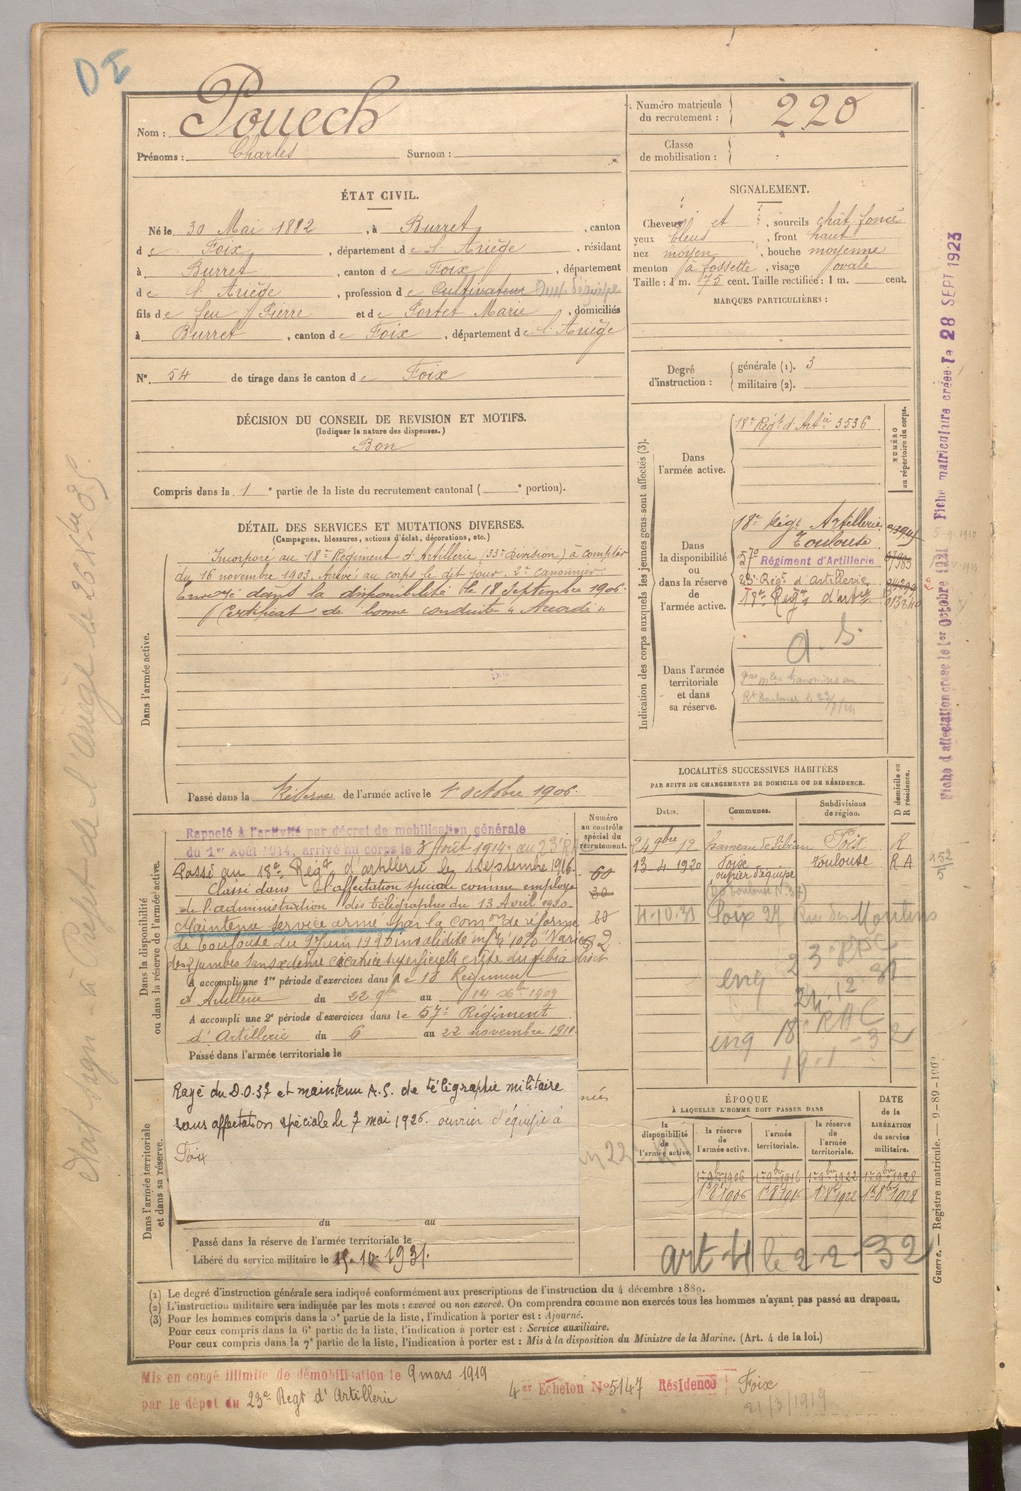 DI
Nom : Pouech
Prénoms : Charles Surnom :
Numéro matricule du recrutement : 220
Classe de mobilisation :
ÉTAT CIVIL.
Né le 30 Mai 1882, à Burret, canton
de Foix, département de l'Ariège, résidant
à Burret, canton de Foix, département
de l'Ariège, profession de Cultivateur
fils de feu Pierre et de Portet Marie, domiciliés
à Burret, canton de Foix, département de l'Ariège
N° 54 de tirage dans le canton de Foix
SIGNALEMENT.
Cheveux et sourcils chât foncé
yeux bleus, front haut
nez moyen, bouche moyenne
menton à fossette, visage ovale
Taille : 1 m. 75 cent. Taille rectifiée : 1 m. cent.
MARQUES PARTICULIÈRES :
Degré d'instruction : générale (1). 3
militaire (2).
DÉCISION DU CONSEIL DE REVISION ET MOTIFS.
(Indiquer la nature des dispenses.)
Bon
Compris dans la 1e partie de la liste du recrutement cantonal ( e portion).
DÉTAIL DES SERVICES ET MUTATIONS DIVERSES.
(Campagnes, blessures, actions d'éclat, décorations, etc.)
Dans l'armée active.
Incorporé au 18e Régiment d'Artillerie (33e division) à compter
du 16 novembre 1903. Arrivé au corps le dit jour, 2e canonnier
Envoyé dans la disponibilité le 18 Septembre 1906.
Certificat de bonne conduite "Accordé"
Passé dans la Réserve de l'armée active le 1er octobre 1906.
Indication des corps auxquels les jeunes gens sont affectés (3).
NUMÉRO au répertoire du corps.
Dans l'armée active.
18e Régt d'Artie 3536
Dans la disponibilité ou dans la réserve de l'armée active.
18e Régt Artillerie
Toulouse
57e Régiment d'Artillerie
23e Régt d'Artillerie
18e Régt d'artie
Dans l'armée territoriale et dans sa réserve.
a. S.
LOCALITÉS SUCCESSIVES HABITÉES
PAR SUITE DE CHANGEMENTS DE DOMICILE OU DE RÉSIDENCE.
Dates. Communes. Subdivisions de région. D domicile ou R résidence.
24 9bre 12 Foix R
13-4-1920 Foix Toulouse R A
ouvrier d'équipe
4-10-31 Foix 27 Rue des Moulins
23e RAC
18e RAC
Dans la disponibilité ou dans la réserve de l'armée active.
Numéro au contrôle spécial du recrutement.
Rappelé à l'activité par décret de mobilisation générale
du 1er Août 1914, arrivé au corps le 3 Août 1914 au 23e RA
Passé au 18e Régt d'artillerie le 1er septembre 1916
Classé dans l'affectation spéciale comme employé
de l'administration des télégraphes du 13 Avril 1920
Maintenu service armé par la comon de réforme
de Toulouse du 9 Juin 1920 invalidité infre à 10% "Varices
des 2 jambes sans œdème cicatrice superficielle crête du tibia droit
A accompli une 1re période d'exercices dans le 18 Régiment
d'Artillerie du 22 9bre au 14 Xbre 1909
A accompli une 2e période d'exercices dans le 57e Régiment
d'Artillerie du 6 au 22 novembre 1911
Passé dans l'armée territoriale le
Dans l'armée territoriale et dans sa réserve.
Rayé du D.O.37 et maintenu A.S. de télégraphie militaire
sans affectation spéciale le 7 mai 1926. ouvrier d'équipe à
Foix
du au
Passé dans la réserve de l'armée territoriale le
Libéré du service militaire le 15-10-1931.
ÉPOQUE À LAQUELLE L'HOMME DOIT PASSER DANS
la disponibilité de l'armée active. la réserve de l'armée active. l'armée territoriale. la réserve de l'armée territoriale. DATE de la LIBÉRATION du service militaire.
1er 9bre 1906 1er 9bre 1916 1er 9bre 1922 1er 9bre 1928
1er 8bre 1906 1er 8bre 1916 1er 8bre 1922 1er 8bre 1928
art 4 le 2-2-32
(1) Le degré d'instruction générale sera indiqué conformément aux prescriptions de l'instruction du 4 décembre 1889.
(2) L'instruction militaire sera indiquée par les mots : exercé ou non exercé. On comprendra comme non exercés tous les hommes n'ayant pas passé au drapeau.
(3) Pour les hommes compris dans la 5e partie de la liste, l'indication à porter est : Ajourné.
Pour ceux compris dans la 6e partie de la liste, l'indication à porter est : Service auxiliaire.
Pour ceux compris dans la 7e partie de la liste, l'indication à porter est : Mis à la disposition du Ministre de la Marine. (Art. 4 de la loi.)
Mis en congé illimité de démobilisation le 9 mars 1919
par le dépôt du 23e Régt d'Artillerie
4e Echelon N° 5147 Résidence Foix
21/3/1919
Fiche d'affectation créée le 1er Octobre 1921 Fiche matriculaire créée le 28 SEPT 1923
152/5
Guerre. — Registre matricule. — 9-89-1902